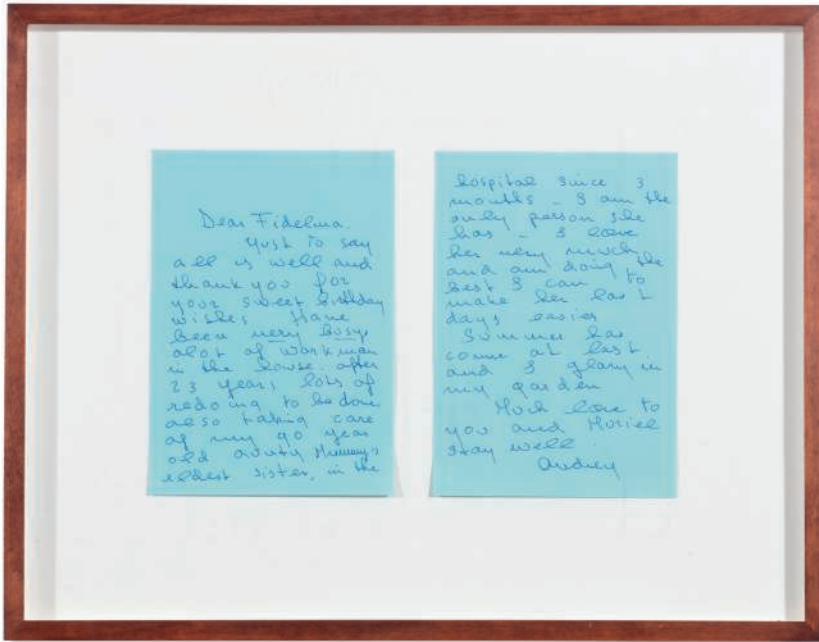 Dear Fidelma.
Just to say
all is well and
thank you for
your sweet birthday
wishes Have
been very busy
alot of workmen
in the house. after
23 years lots of
redoing to be done
also taking care
of my 90 year
old aunty Mummy's
eldest sister, in the
hospital since 3
months - I am the
only person she
has - I love
her very much
and am doing the
best I can to
make her last
days easier
Summer has
come at last
and I glory in
my garden
Much love to
you and Muriel
stay well
Audrey